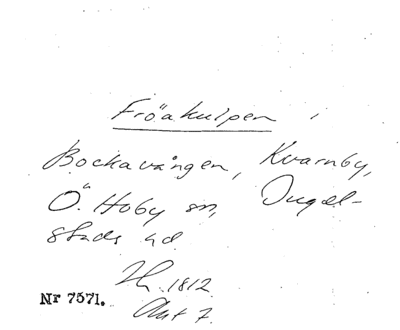 Fröakulpen i
Bockavången, Kvarnby,
Ö. Hoby sn, Ingel-
stads hd
1812
Nr 7571. Akt 7.